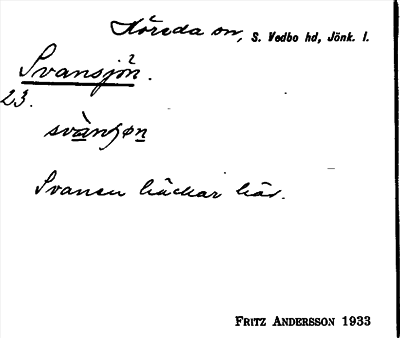 Höreda sn, S. Vedbo hd, Jönk. l.
Svansjön.
23.
svànʃøn
Svanen häckar här.
FRITZ ANDERSSON 1933